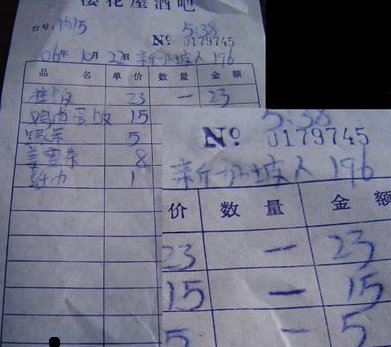 樱花屋酒吧
台号: 1615
5:38
№ 0179745
06年 10月 22日 新加坡人 196
品 名 单价 数量 金额
饭 23 — 23
鸡肉蛋饭 15
5
姜雪茶 8
纸巾 1
5:38
№ 0179745
新加坡人 196
价 数量 金额
23 — 23
15 — 15
5 — 5